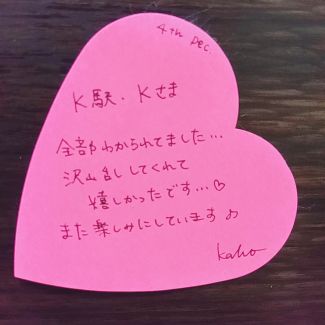 4th Dec.
K駅・Kさま
全部わかられてました…
沢山乱してくれて
嬉しかったです…♡
また楽しみにしています♪
kaho